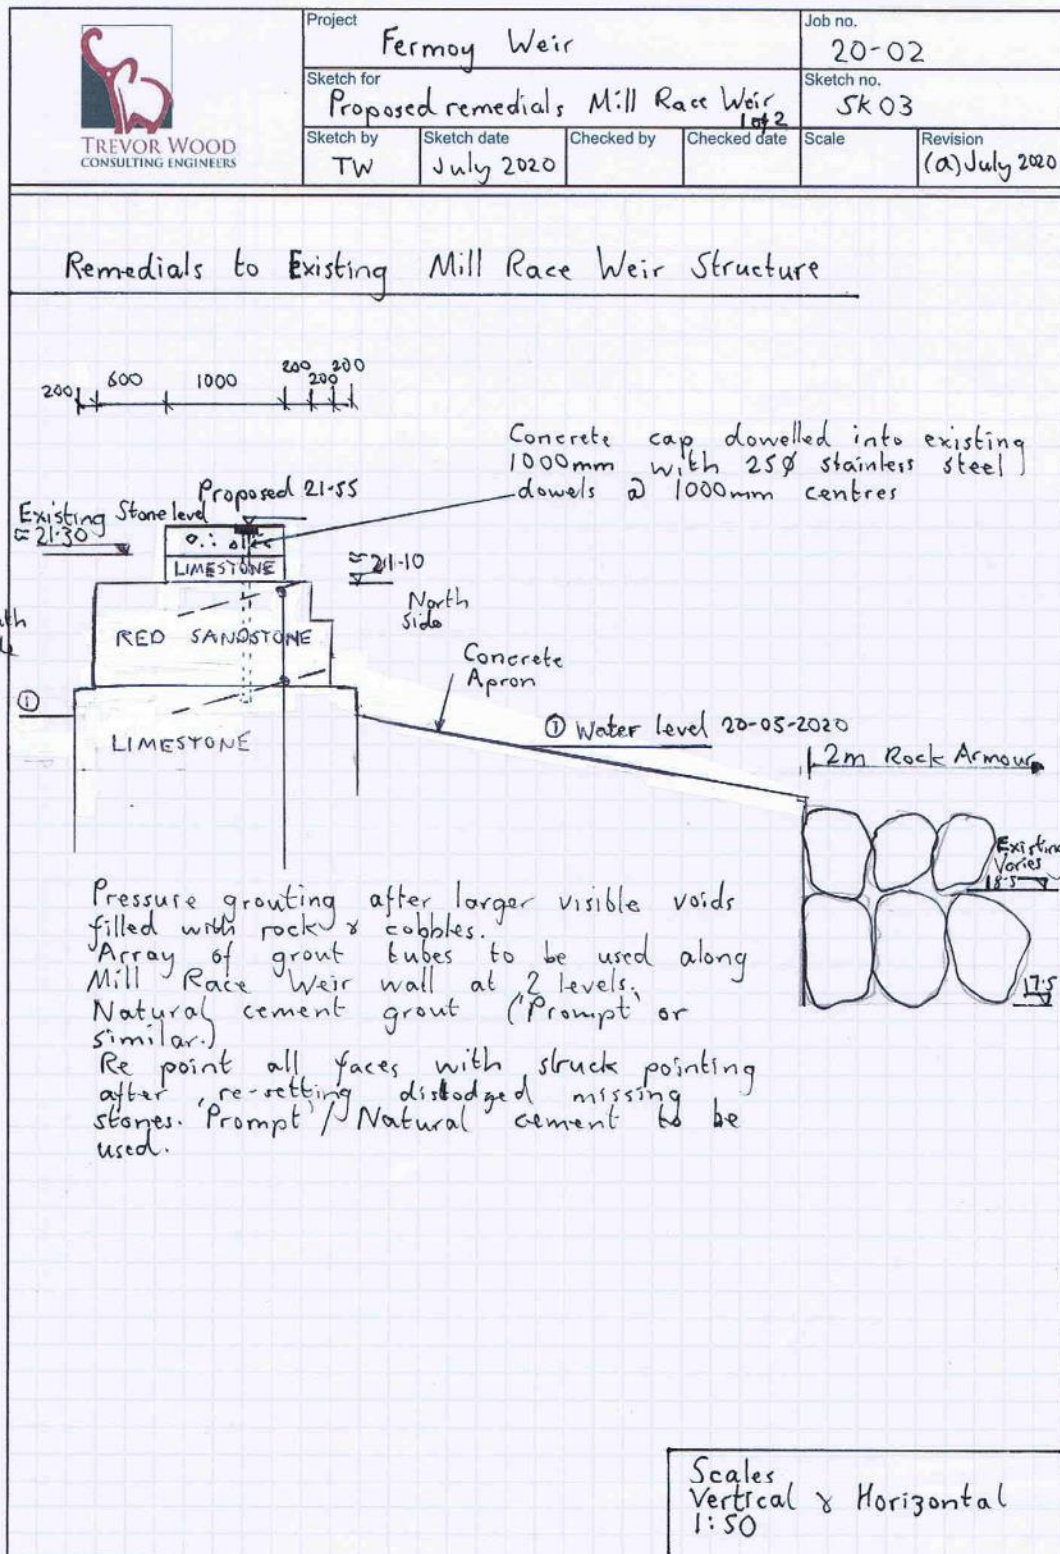 TREVOR WOOD
CONSULTING ENGINEERS
Project
Fermoy Weir
Job no.
20-02
Sketch for
Proposed remedials Mill Race Weir
1 of 2
Sketch no.
SK03
Sketch by
TW
Sketch date
July 2020
Checked by
Checked date
Scale
Revision
(a) July 2020
Remedials to Existing Mill Race Weir Structure
200
600
1000
200
200
200
Concrete cap dowelled into existing
1000mm with 25ø stainless steel
dowels @ 1000mm centres
Proposed 21.55
Existing Stone level
≈ 21.30
LIMESTONE
≈ 21.10
North
side
RED SANDSTONE
Concrete
Apron
①
LIMESTONE
① Water level 20-05-2020
2m Rock Armour
Existing
Varies
18.5
17.5
Pressure grouting after larger visible voids
filled with rock & cobbles.
Array of grout tubes to be used along
Mill Race Weir wall at 2 levels.
Natural cement grout ('Prompt' or
similar.)
Re point all faces with struck pointing
after re-setting dislodged missing
stones. 'Prompt' / Natural cement to be
used.
Scales
Vertical & Horizontal
1:50